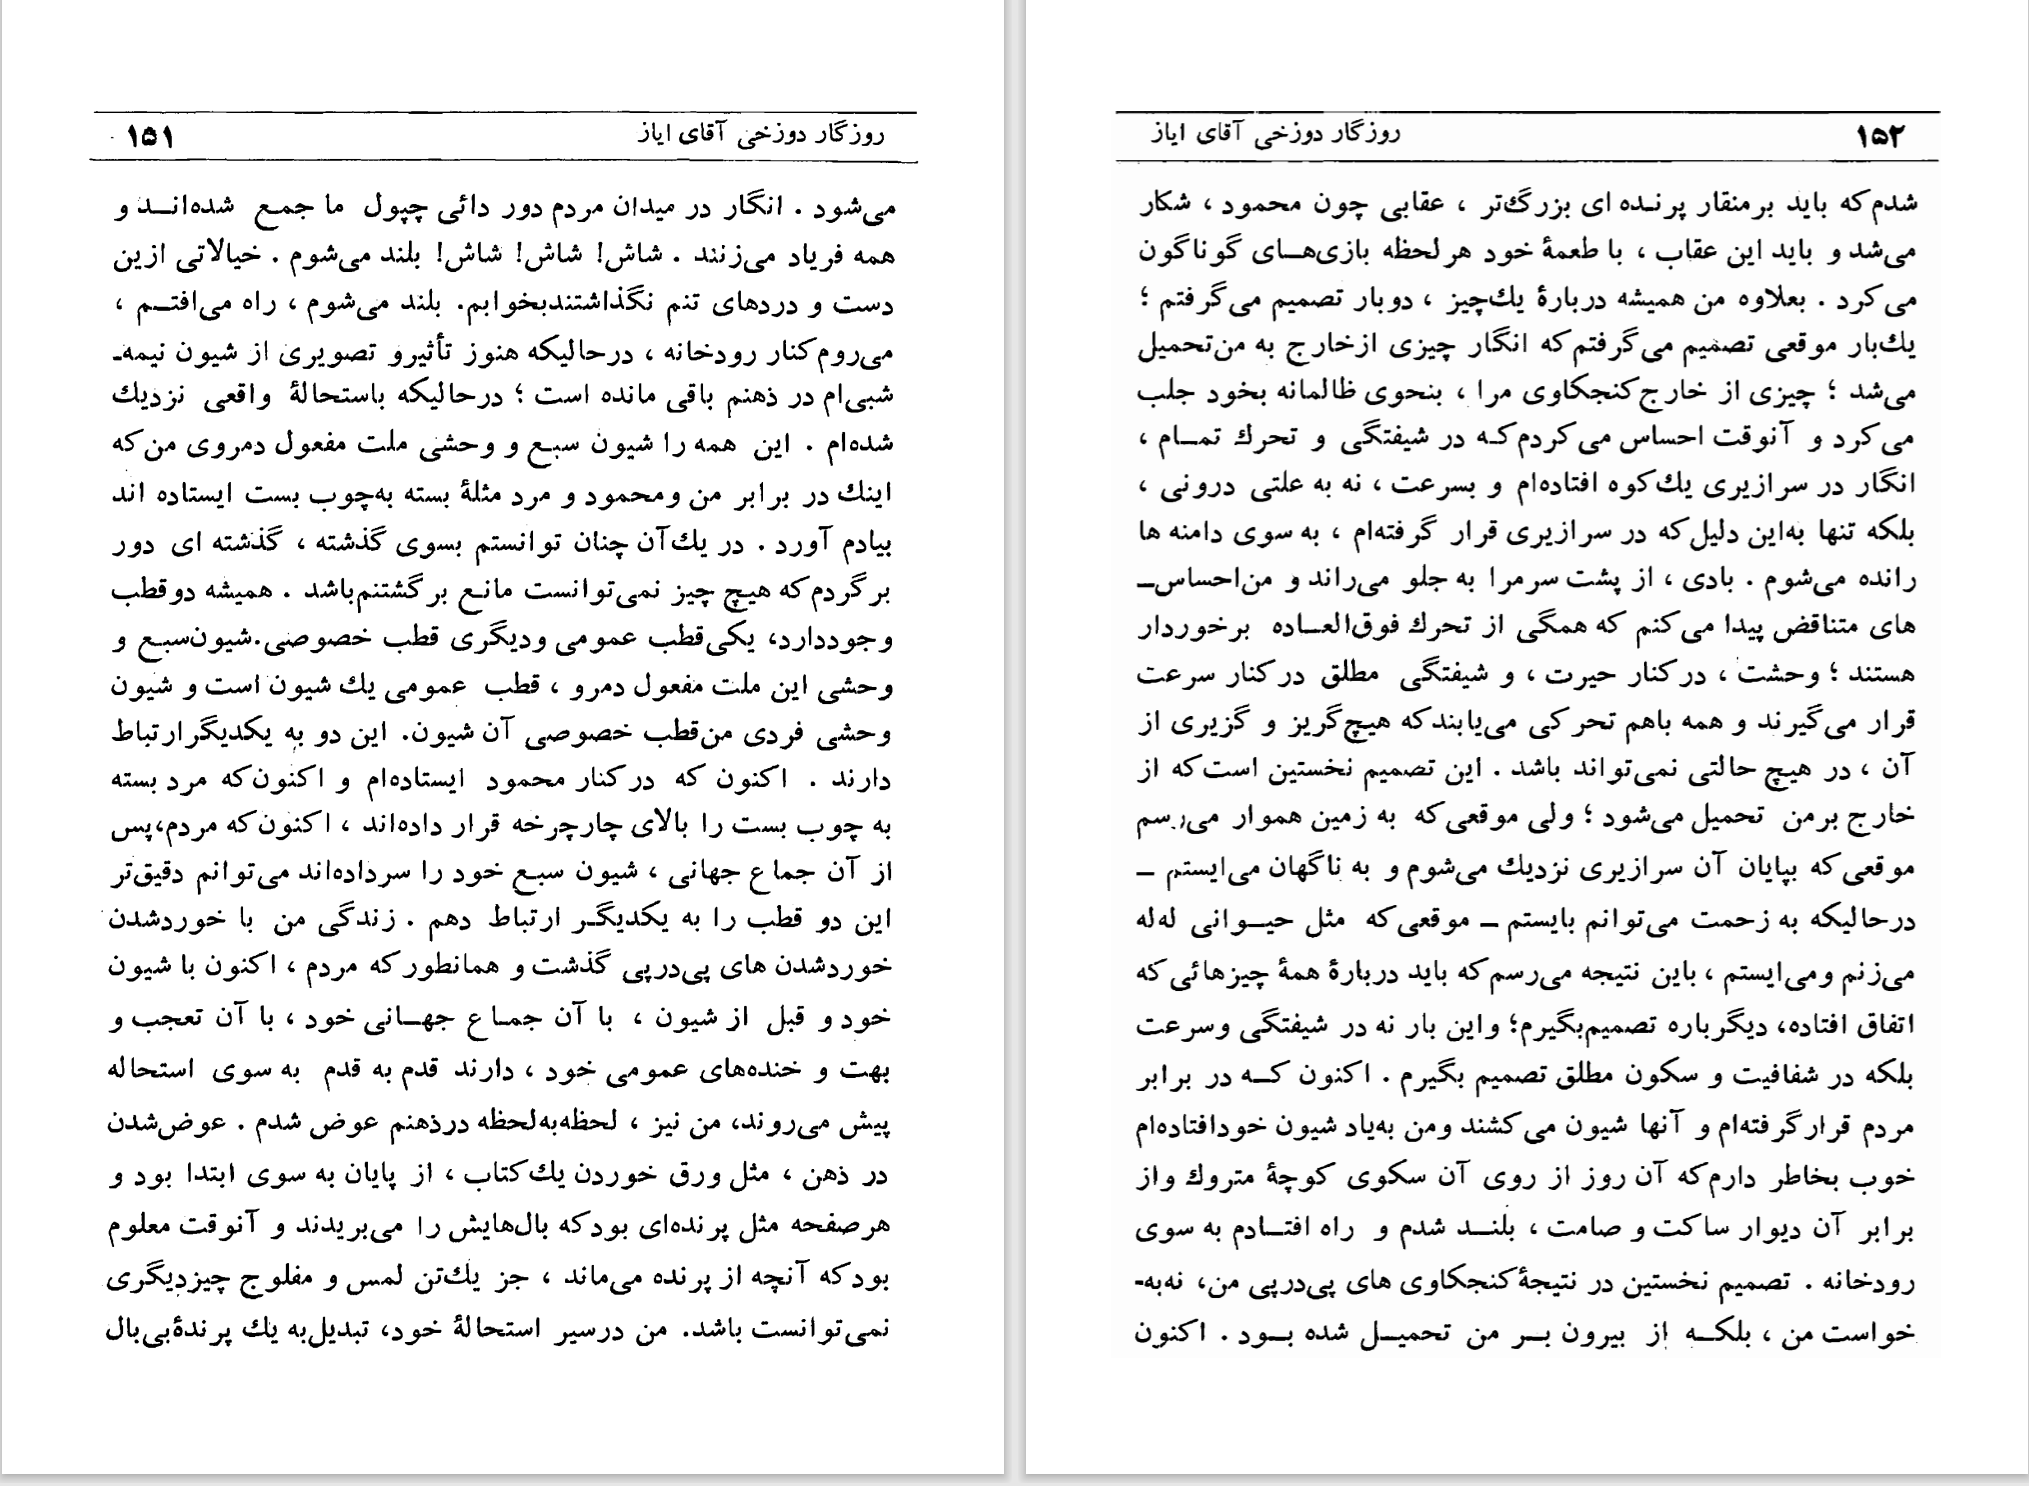 روزگار دوزخی آقای ایاز ۱۵۱
می‌شود . انگار در میدان مردم دور دائی چپول ما جمع شده‌اند و
همه فریاد می‌زنند . شاش! شاش! شاش! بلند می‌شوم . خیالاتی ازین
دست و دردهای تنم نگذاشتندبخوابم. بلند می‌شوم ، راه می‌افتم ،
می‌روم کنار رودخانه ، درحالیکه هنوز تأثیرو تصویری از شیون نیمه‌ـ
شبی‌ام در ذهنم باقی مانده است ؛ درحالیکه باستحالهٔ واقعی نزدیك
شده‌ام . این همه را شیون سبع و وحشی ملت مفعول دمروی من که
اینك در برابر من ومحمود و مرد مثلهٔ بسته به‌چوب بست ایستاده اند
بیادم آورد . در یك‌آن چنان توانستم بسوی گذشته ، گذشته ای دور
برگردم که هیچ چیز نمی‌توانست مانع برگشتنم‌باشد . همیشه دوقطب
وجوددارد، یکی‌قطب عمومی ودیگری قطب خصوصی.شیون‌سبع و
وحشی این ملت مفعول دمرو ، قطب عمومی یك شیون است و شیون
وحشی فردی من‌قطب خصوصی آن شیون. این دو به یکدیگرارتباط
دارند . اکنون که درکنار محمود ایستاده‌ام و اکنون‌که مرد بسته
به چوب بست را بالای چارچرخه قرار داده‌اند ، اکنون‌که مردم،پس
از آن جماع جهانی ، شیون سبع خود را سرداده‌اند می‌توانم دقیق‌تر
این دو قطب را به یکدیگر ارتباط دهم . زندگی من با خوردشدن
خوردشدن های پی‌درپی گذشت و همانطورکه مردم ، اکنون با شیون
خود و قبل از شیون ، با آن جماع جهانی خود ، با آن تعجب و
بهت و خنده‌های عمومی خود ، دارند قدم به قدم به سوی استحاله
پیش می‌روند، من نیز ، لحظه‌به‌لحظه درذهنم عوض شدم . عوض‌شدن
در ذهن ، مثل ورق خوردن یك‌کتاب ، از پایان به سوی ابتدا بود و
هرصفحه مثل پرنده‌ای بودکه بال‌هایش را می‌بریدند و آنوقت معلوم
بودکه آنچه از پرنده می‌ماند ، جز یك‌تن لمس و مفلوج چیزدیگری
نمی‌توانست باشد. من درسیر استحالهٔ خود، تبدیل‌به یك پرندهٔ‌بی‌بال
روزگار دوزخی آقای ایاز ۱۵۲
شدم‌که باید برمنقار پرنده ای بزرگ‌تر ، عقابی چون محمود ، شکار
می‌شد و باید این عقاب ، با طعمهٔ خود هرلحظه بازی‌های گوناگون
می‌کرد . بعلاوه من همیشه دربارهٔ یك‌چیز ، دوبار تصمیم می‌گرفتم ؛
یك‌بار موقعی تصمیم می‌گرفتم‌که انگار چیزی ازخارج به من‌تحمیل
می‌شد ؛ چیزی از خارج‌کنجکاوی مرا ، بنحوی ظالمانه بخود جلب
می‌کرد و آنوقت احساس می‌کردم‌که در شیفتگی و تحرك تمام ،
انگار در سرازیری یك‌کوه افتاده‌ام و بسرعت ، نه به علتی درونی ،
بلکه تنها به‌این دلیل‌که در سرازیری قرار گرفته‌ام ، به سوی دامنه ها
رانده می‌شوم . بادی ، از پشت سرمرا به جلو می‌راند و من‌احساس‌ـ
های متناقض پیدا می‌کنم که همگی از تحرك فوق‌العاده برخوردار
هستند ؛ وحشت ، درکنار حیرت ، و شیفتگی مطلق درکنار سرعت
قرار می‌گیرند و همه باهم تحرکی می‌یابندکه هیچ‌گریز و گزیری از
آن ، در هیچ حالتی نمی‌تواند باشد . این تصمیم نخستین است‌که از
خارج برمن تحمیل می‌شود ؛ ولی موقعی‌که به زمین هموار می‌رسم
موقعی‌که بپایان آن سرازیری نزدیك می‌شوم و به ناگهان می‌ایستم ــ
درحالیکه به زحمت می‌توانم بایستم ــ موقعی‌که مثل حیوانی له‌له
می‌زنم ومی‌ایستم ، باین نتیجه می‌رسم‌که باید دربارهٔ همهٔ چیزهائی‌که
اتفاق افتاده، دیگرباره تصمیم‌بگیرم؛ واین بار نه در شیفتگی وسرعت
بلکه در شفافیت و سکون مطلق تصمیم بگیرم . اکنون که در برابر
مردم قرارگرفته‌ام و آنها شیون می‌کشند ومن به‌یاد شیون خودافتاده‌ام
خوب بخاطر دارم‌که آن روز از روی آن سکوی کوچهٔ متروك واز
برابر آن دیوار ساکت و صامت ، بلند شدم و راه افتادم به سوی
رودخانه . تصمیم نخستین در نتیجهٔ‌کنجکاوی های پی‌درپی من، نه‌به-
خواست من ، بلکه از بیرون بر من تحمیل شده بود . اکنون